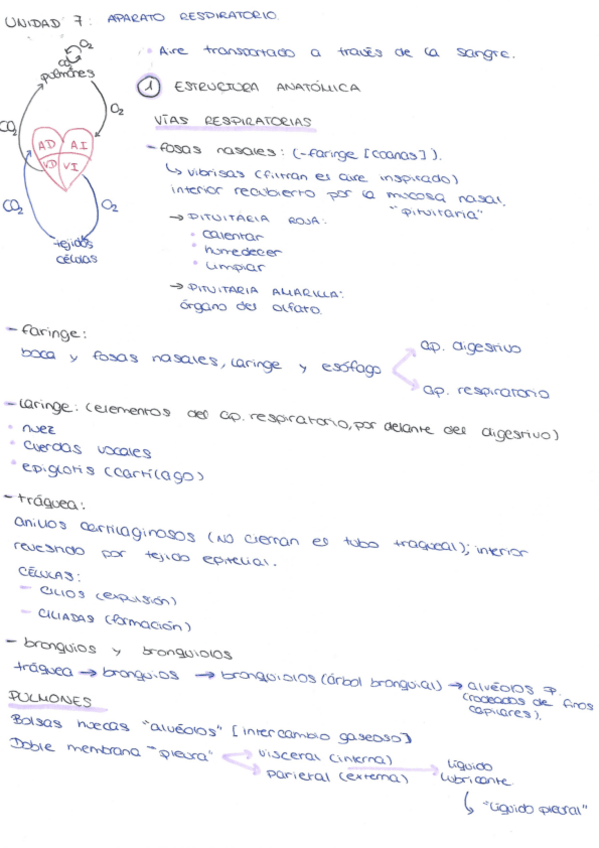 UNIDAD 7: APARATO RESPIRATORIO.
O2
pulmones
O2
CO2
AD AI
VD VI
CO2
O2
tejidos
células
Aire transportado a través de la sangre.
1 ESTRUCTURA ANATÓMICA
VÍAS RESPIRATORIAS
- fosas nasales: (-faringe [coanas]).
↳ vibrisas (filtran el aire inspirado)
interior recubierto por la mucosa nasal.
"pituitaria"
→ PITUITARIA ROJA:
• calentar
• humedecer
• limpiar
→ PITUITARIA AMARILLA:
órgano del olfato.
- faringe:
boca y fosas nasales, laringe y esófago
ap. digestivo
ap. respiratorio
- laringe: (elementos del ap. respiratorio, por delante del digestivo)
• nuez
• cuerdas vocales
• epiglotis (cartílago)
- tráquea:
anillos cartilaginosos (NO cierran el tubo traqueal); interior
revestido por tejido epitelial.
CÉLULAS:
- CILIOS (expulsión)
- CILIADAS (formación)
- bronquios y bronquiolos
tráquea → bronquios → bronquiolos (árbol bronquial) → alvéolos p.
(rodeados de finos
capilares).
PULMONES
Bolsas huecas "alvéolos" [intercambio gaseoso]
Doble membrana "pleura"
visceral (interna)
parietal (externa)
líquido
lubricante
↳ "líquido pleural"